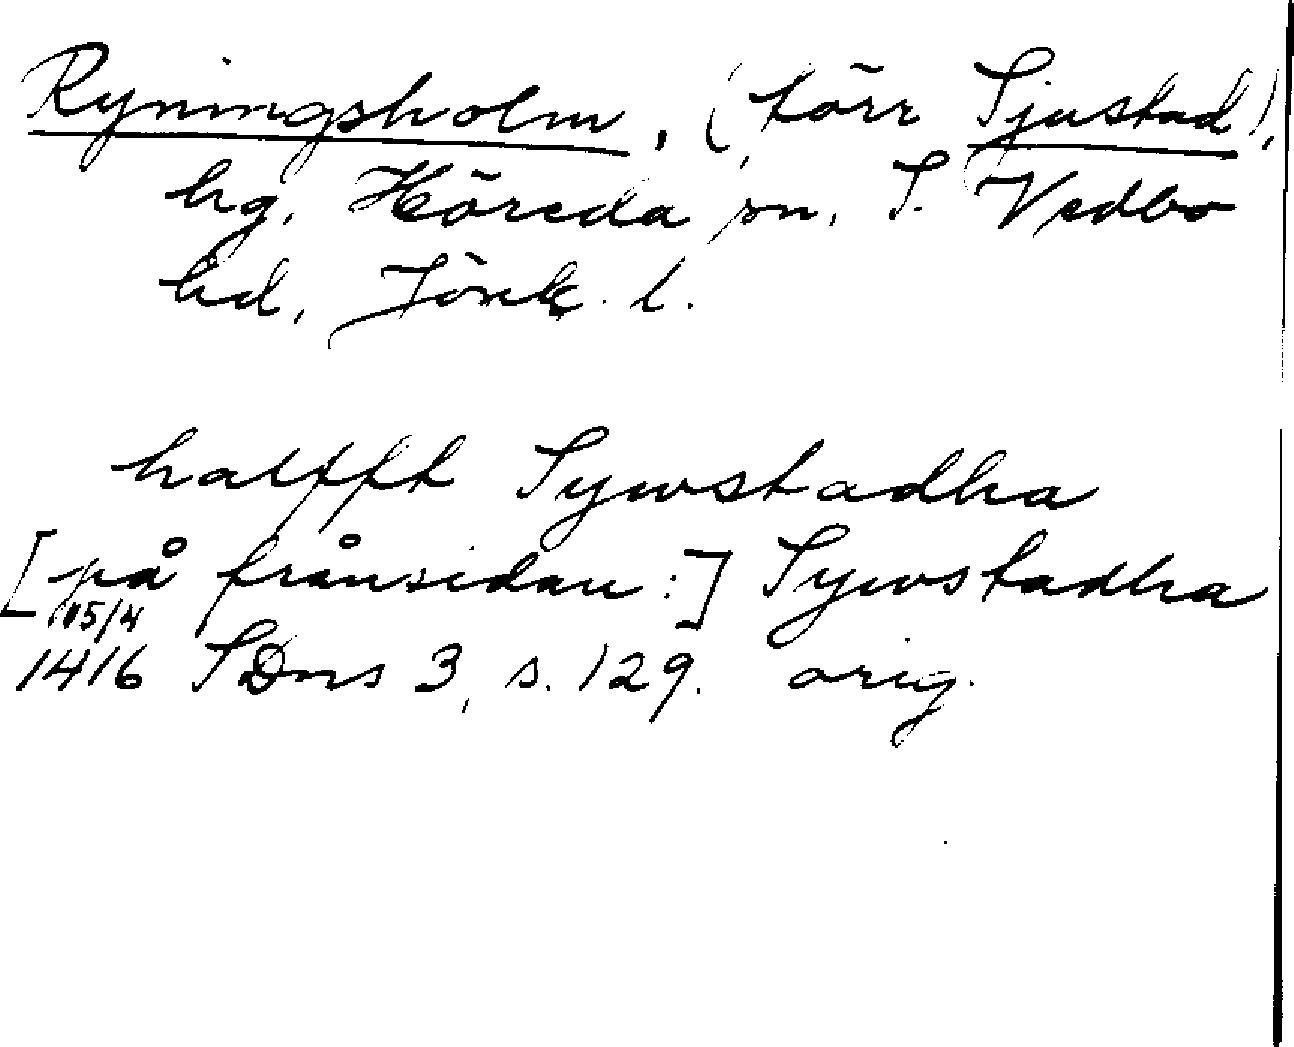 Ryningsholm, (förr Sjustad),
hg, Höreda sn, S. Vedbo
hd, Jönk. l.
halfft Sywstadha
[på frånsidan:] Sywstadha
15/4
1416 SDns 3, s. 129. orig.